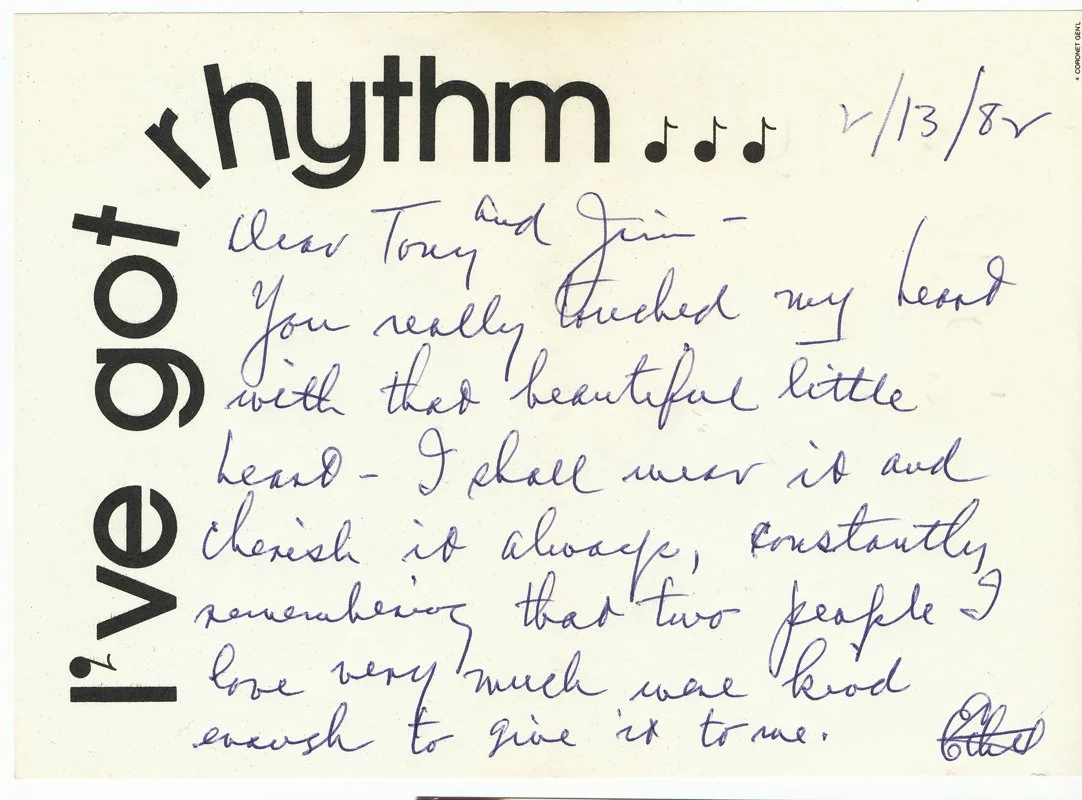 I've got rhythm...
© CORONET GEN'L
2/13/82
Dear Tony and Jim -
You really touched my heart
with that beautiful little
heart - I shall wear it and
cherish it always, constantly
remembering that two people I
love very much were kind
enough to give it to me.
Ethel